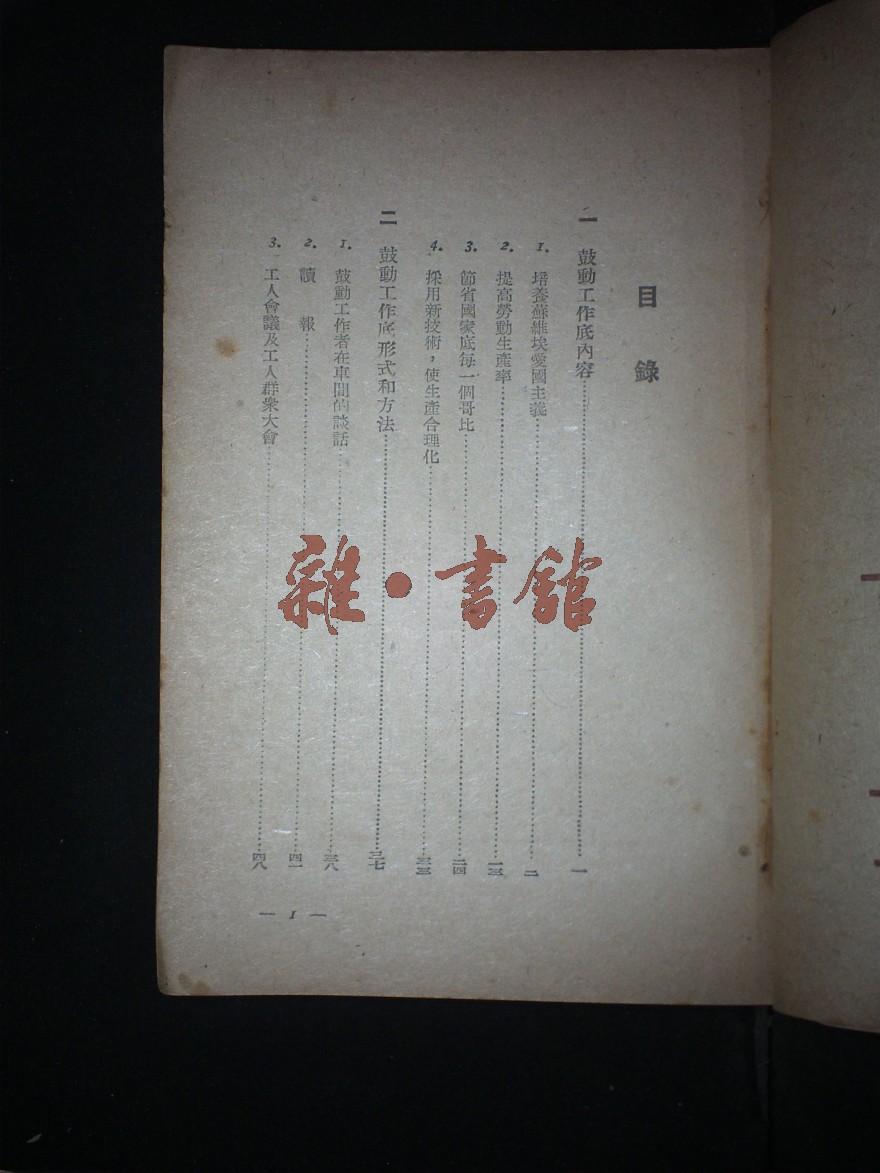 目錄
一 鼓動工作底內容……一
1. 培養蘇維埃愛國主義……二
2. 提高勞動生產率……一三
3. 節省國家底每一個哥比……二四
4. 採用新技術，使生產合理化……三三
二 鼓動工作底形式和方法……三七
1. 鼓動工作者在車間的談話……三八
2. 讀報……四一
3. 工人會議及工人群衆大會……四八
— 1 —
雜·書館